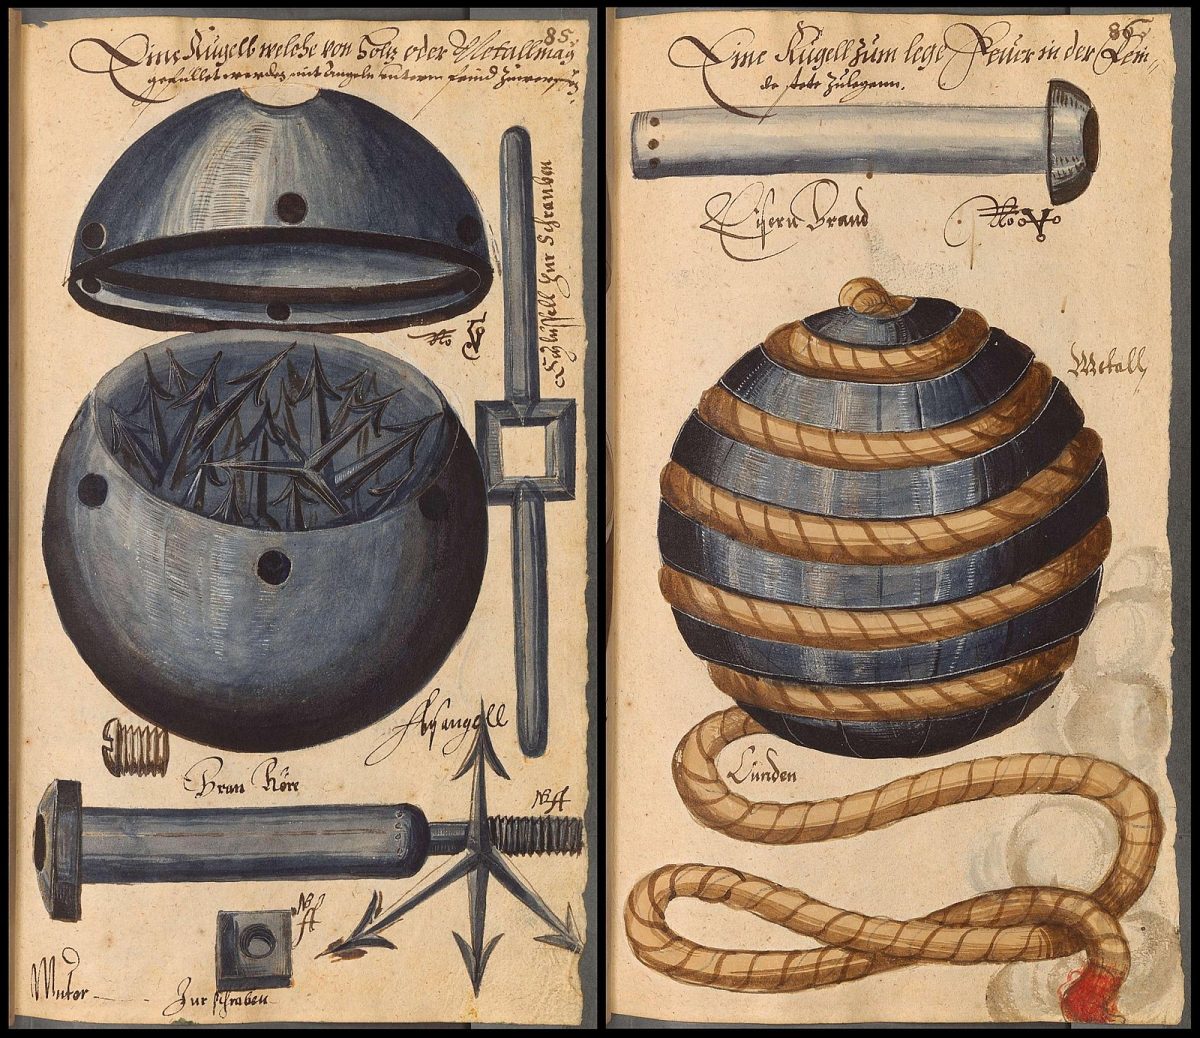 85.
Eine Kugell welche von Holtz oder Metall mag
gefüllet werden mit angeln unterm feind zuwerffen.
No
Schlüssell zur Schrauben
Fusangell
Bran Rörr
NA
NA
Mutor
Zur schraben
86
Eine Kugell zum lege Feuer in der Fein„
de stete zulegenn.
Eisern Brand
No
Metall
Lunden